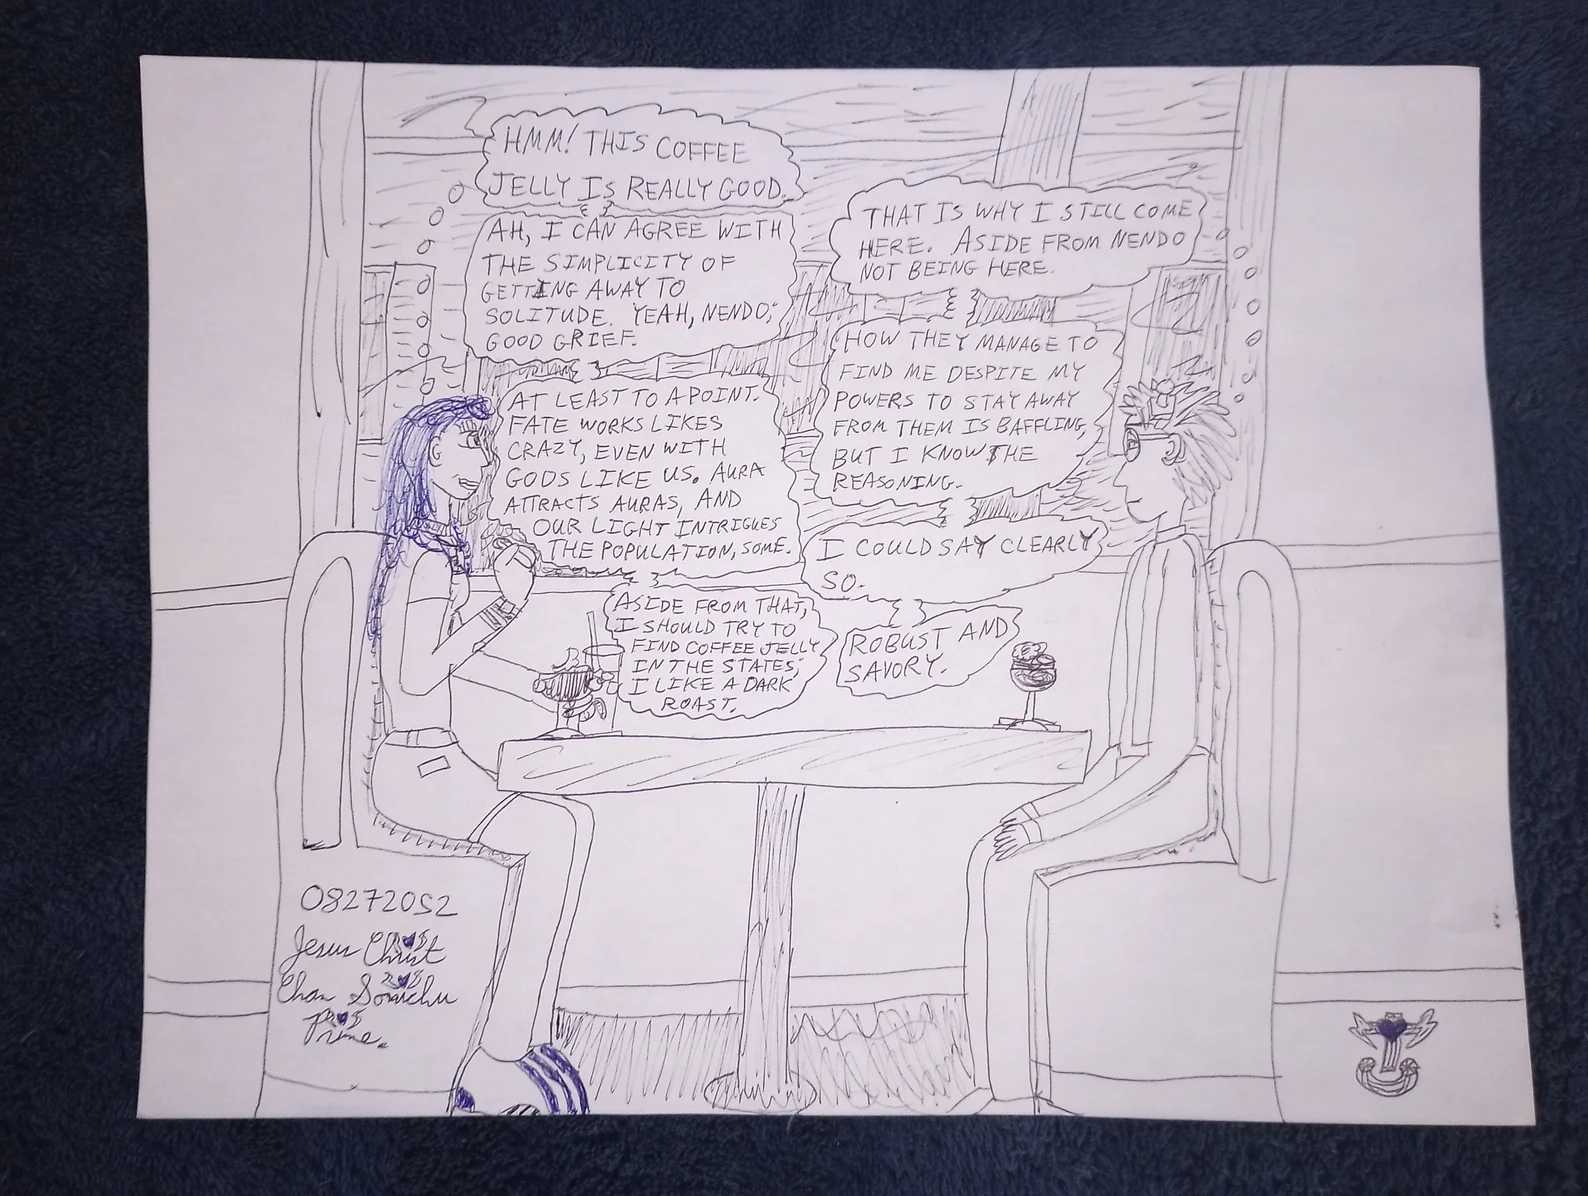 HMM! THIS COFFEE
JELLY IS REALLY GOOD.
THAT IS WHY I STILL COME
HERE. ASIDE FROM NENDO
NOT BEING HERE.
AH, I CAN AGREE WITH
THE SIMPLICITY OF
GETTING AWAY TO
SOLITUDE. YEAH, NENDO;
GOOD GRIEF.
HOW THEY MANAGE TO
FIND ME DESPITE MY
POWERS TO STAY AWAY
FROM THEM IS BAFFLING,
BUT I KNOW THE
REASONING.
AT LEAST TO A POINT.
FATE WORKS LIKES
CRAZY, EVEN WITH
GODS LIKE US. AURA
ATTRACTS AURAS, AND
OUR LIGHT INTRIGUES
THE POPULATION, SOME.
I COULD SAY CLEARLY
SO.
ASIDE FROM THAT,
I SHOULD TRY TO
FIND COFFEE JELLY
IN THE STATES;
I LIKE A DARK
ROAST.
ROBUST AND
SAVORY.
08272052
Jesus Christ
Chan Sonichu
Prime.